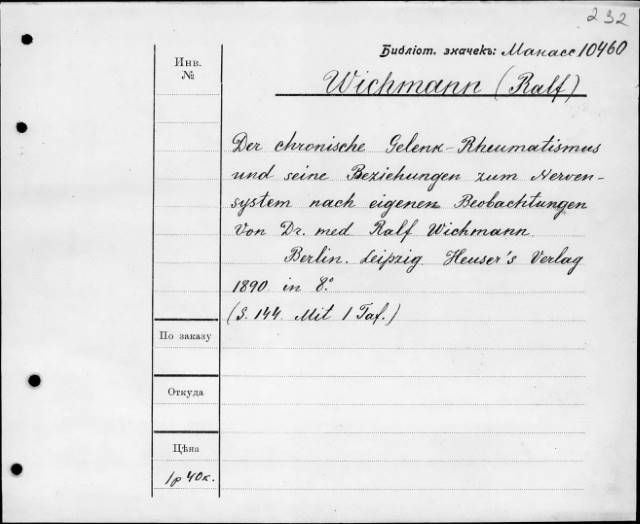 232
Библіот. значекъ: Манасс 10460
Инв.
№
Wichmann (Ralf)
Der chronische Gelenk-Rheumatismus
und seine Beziehungen zum Nerven-
system nach eigenen Beobachtungen
Von Dr. med Ralf Wichmann.
Berlin. Leipzig. Heuser's Verlag
1890 in 8°
(S. 144. Mit 1 Taf.)
По заказу
Откуда
Цѣна
1р 40к.